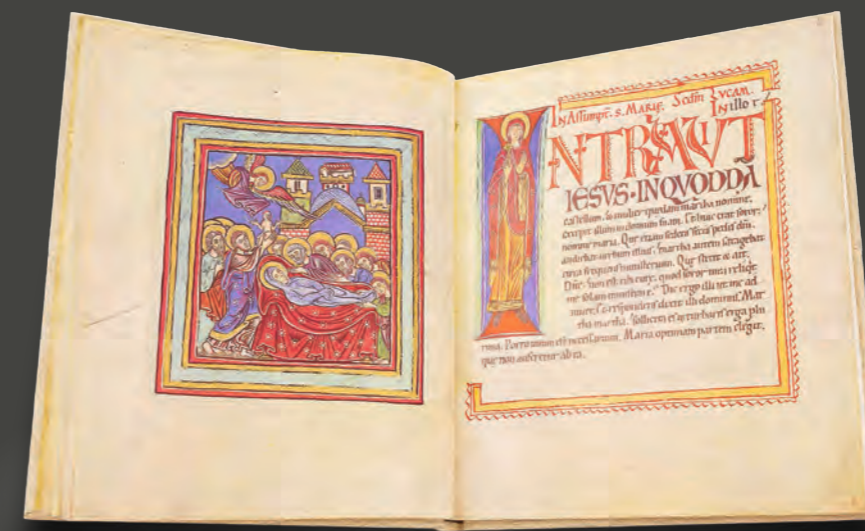 IN Assumpt. S. MARIE. Scdm LVCAM.
IN illo t.
INTRAVIT
IESVS · IN QVODDĀ
castellum. & mulier quedam martha nomine,
excepit illum in domum suam. Et huic erat soror,
nomine maria. Que etiam sedens secus pedes dnī,
audiebat verbum illius. Martha autem satagebat
circa frequens ministerium. Que stetit & ait.
Dne, non est tibi cure, quod soror mea reliqt
me solam ministrare? Dic ergo illi ut me ad
iuuet. Et respondens dixit illi dominus. Mar
tha martha, sollicita es & turbaris erga plu
rima. Porro unum est necessarium. Maria optimam partem elegit,
que non auferetur ab ea.